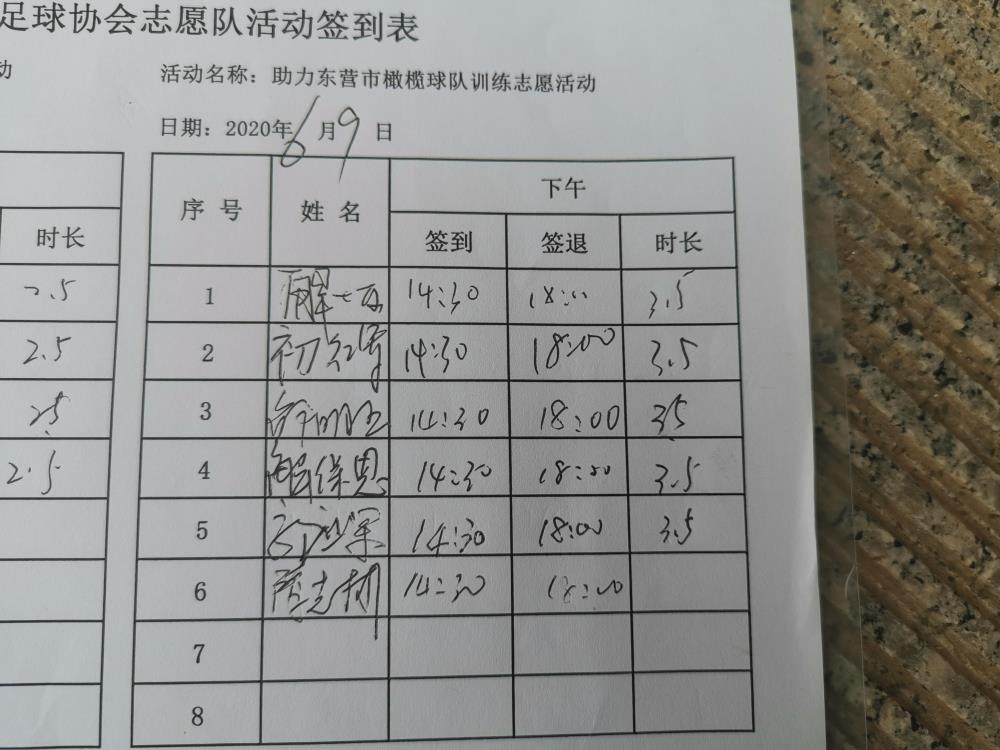 足球协会志愿队活动签到表
动
活动名称：助力东营市橄榄球队训练志愿活动
日期：2020年6月9日
时长
2.5
2.5
25
2.5
序号 姓名 下午
签到 签退 时长
1 14:30 18:00 3.5
2 14:30 18:00 3.5
3 14:30 18:00 35
4 解保恩 14:30 18:00 3.5
5 14:30 18:00 3.5
6 14:30 18:00
7
8